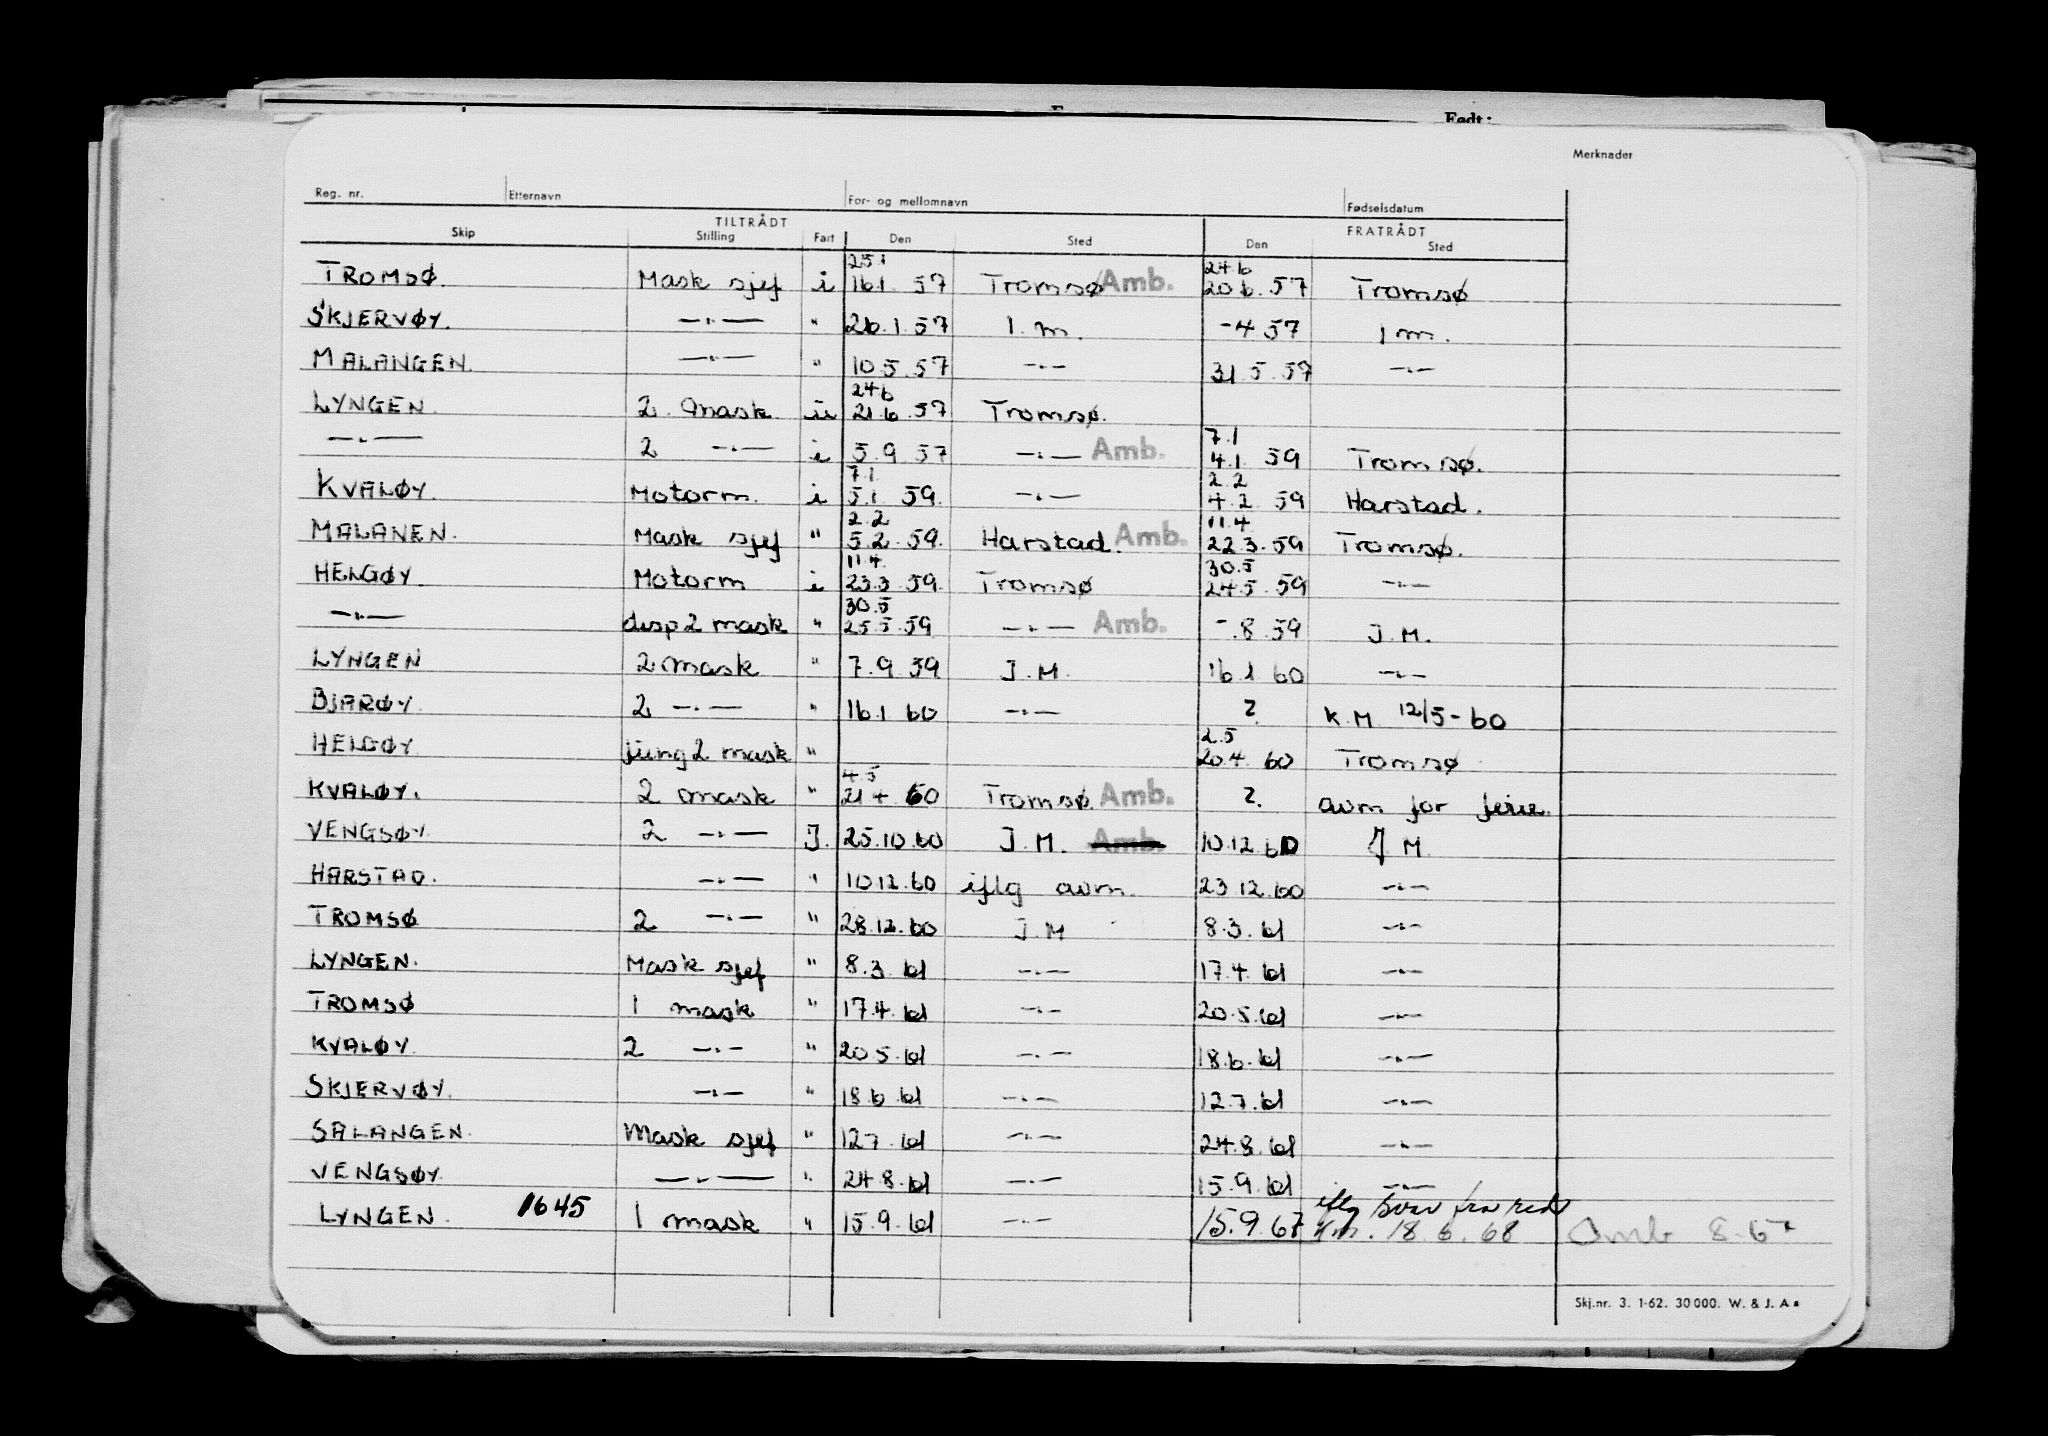 Født:
Merknader
Reg. nr. Etternavn For- og mellomnavn Fødselsdatum
TILTRÅDT FRATRÅDT
Skip Stilling Fart Den Sted Den Sted
25.1 24.6
TROMSØ. Mask sjef i 16.1 57 Tromsø Amb. 20.6.57 Tromsø
SKJERVØY. —.— " 26.1.57 I.m. -4 57 I m.
MALANGEN. —.— " 10.5.57 —.— 31.5.57 —.—
24.6
LYNGEN 2. Mask ii 21.6.57 Tromsø.
7.1
—.— 2 —.— i 5.9.57 —.— Amb. 4.1. 59 Tromsø.
7.1. 2.2
KVALØY. Motorm. i 5.1. 59. —.— 4.2.59 Harstad.
2.2 11.4
MALANEN. Mask sjef " 5.2.59. Harstad. Amb. 22.3.59 Tromsø.
11.4. 30.5
HELGØY. Motorm i 23.3.59. Tromsø 24.5.59 —.—
30.5
—.— disp 2 mask " 25.5.59 —.— Amb. -.8.59 J.M.
LYNGEN 2 mask " 7.9.59 J.M. 16.1 60 —.—
BJARØY. 2 —.— " 16.1 60 —.— ? K.M 12/5-60
2.5
HELGØY jung 2 mask " 20.4.60 Tromsø
4.5
KVALØY. 2 mask " 21 4 60 Tromsø. Amb. ?. avm for ferie.
VENGSØY. 2 —.— J. 25.10.60 J.M. Amb. 10.12.60 J.M
HARSTAD. —.— " 10.12.60 iflg avm. 23.12.60 —.—
TROMSØ 2 —.— " 28.12.60 J.M 8.3.61 —.—
LYNGEN. Mask sjef " 8.3.61 —.— 17.4.61 —.—
TROMSØ 1 mask " 17.4.61 —.— 20.5.61 —.—
KVALØY. 2 —.— " 20 5.61 —.— 18.6.61 —.—
SKJERVØY. —.— " 18.6.61 —.— 12.7.61 —.—
SALANGEN. Mask sjef " 12.7.61 —.— 24.8.61 —.—
VENGSØY. —.— " 24.8.61 —.— 15.9.61 —.—
iflg svar fra red
LYNGEN. 1645 1 mask " 15.9.61 —.— 15.9.67 18.6.68 Amb 8.67
Skj.nr. 3. 1-62. 30 000. W. & J. A s